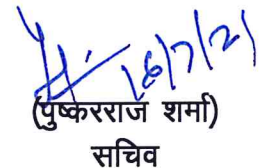 16/7/21
(पुष्करराज शर्मा)
सचिव